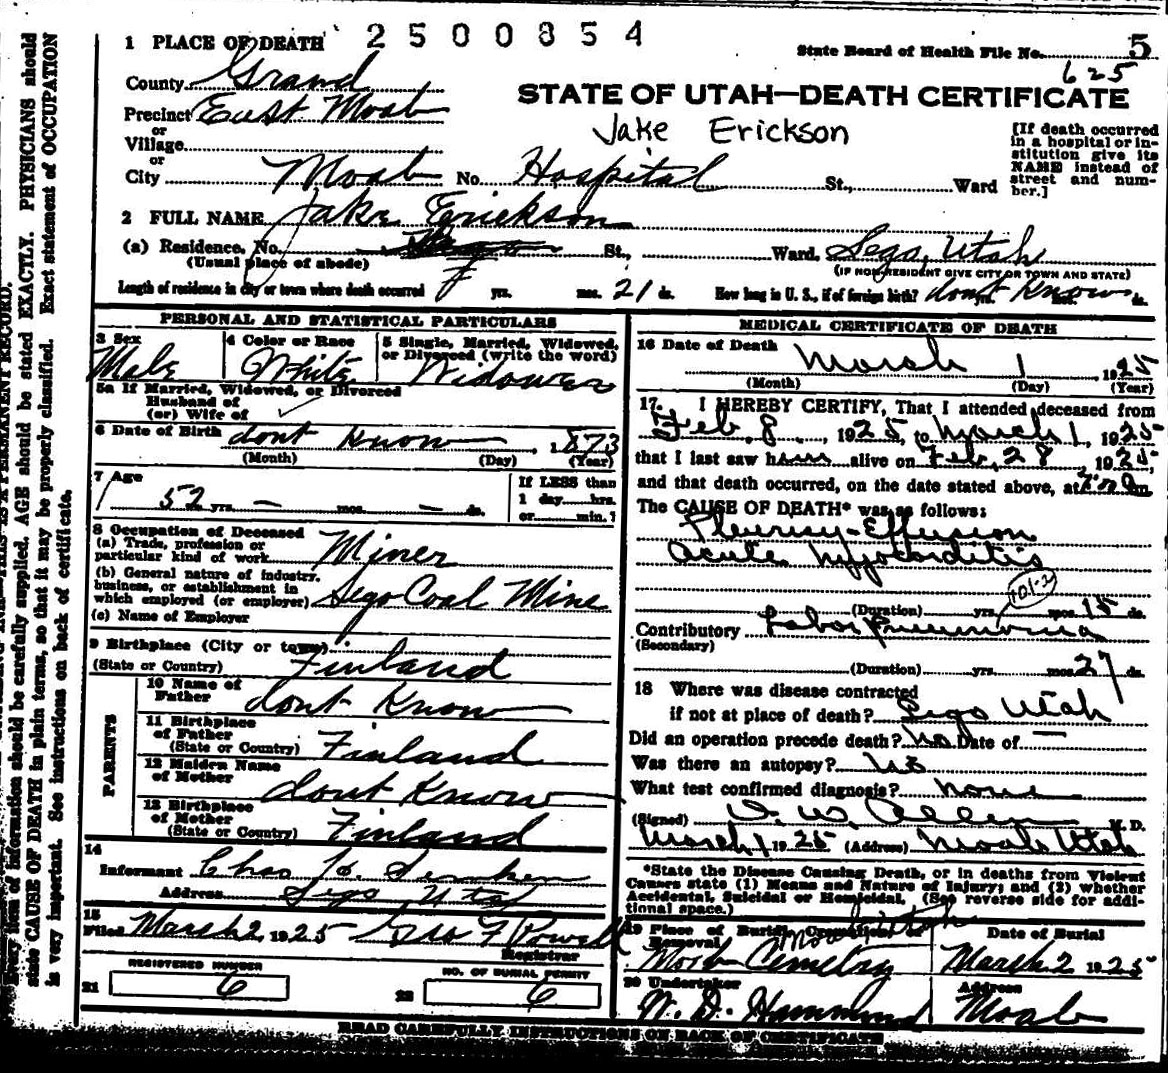 1 PLACE OF DEATH 2500854
State Board of Health File No. 5
625
County Grand
STATE OF UTAH—DEATH CERTIFICATE
Precinct East Moab
or
Village
Jake Erickson
[If death occurred in a hospital or in-
stitution give its
NAME instead of
street and num-
ber.]
or
City Moab No. Hospital St., Ward
2 FULL NAME Jake Erickson
(a) Residence. No. St., Ward. Sego, Utah
(Usual place of abode) (IF NON-RESIDENT GIVE CITY OR TOWN AND STATE)
Length of residence in city or town where death occurred yrs. mos. 21 ds. How long in U. S., if of foreign birth? dont Know ds.
PERSONAL AND STATISTICAL PARTICULARS
3 Sex
Male
4 Color or Race
White
5 Single, Married, Widowed,
or Divorced (write the word)
Widower
5a If Married, Widowed, or Divorced
Husband of
(or) Wife of
6 Date of Birth dont Know, 1873
(Month) (Day) (Year)
7 Age
52 yrs. — mos. — ds.
If LESS than
1 day hrs.
or min.?
8 Occupation of Deceased
(a) Trade, profession or
particular kind of work Miner
(b) General nature of industry,
business, or establishment in
which employed (or employer) Sego Coal Mine
(c) Name of Employer
9 Birthplace (City or town)
(State or Country) Finland
PARENTS
10 Name of
Father dont Know
11 Birthplace
of Father
(State or Country) Finland
12 Maiden Name
of Mother dont Know
13 Birthplace
of Mother
(State or Country) Finland
14
Informant Chas
Address Sego Utah
15
Filed March 2, 1925 Geo F Powell
Registrar
REGISTERED NUMBER
21 6
NO. OF BURIAL PERMIT
22 6
MEDICAL CERTIFICATE OF DEATH
16 Date of Death March 1, 1925
(Month) (Day) (Year)
17. I HEREBY CERTIFY, That I attended deceased from
Feb. 8, 1925, to March 1, 1925
that I last saw him alive on Feb. 28, 1925,
and that death occurred, on the date stated above, at m.
The CAUSE OF DEATH* was as follows:
Pleurisy-Effusion
acute Myocarditis
101-2
(Duration) yrs. mos. 15 ds.
Contributory Lobar Pneumonia
(Secondary)
(Duration) yrs. mos. 27 ds.
18 Where was disease contracted
if not at place of death? Sego Utah
Did an operation precede death? no Date of —
Was there an autopsy? no
What test confirmed diagnosis? none
(Signed) Allen M. D.
March 1 1925 (Address) Moab Utah
*State the Disease Causing Death, or in deaths from Violent
Causes state (1) Means and Nature of Injury; and (2) whether
Accidental, Suicidal or Homicidal. (See reverse side for addi-
tional space.)
19 Place of Burial, Cremation or
Removal Moab Utah
Moab Cemetry
Date of Burial
March 2 1925
20 Undertaker
W. D. Hammond
Address
Moab
READ CAREFULLY INSTRUCTIONS ON BACK OF CERTIFICATE
Every item of information should be carefully supplied. AGE should be stated EXACTLY. PHYSICIANS should
state CAUSE OF DEATH in plain terms, so that it may be properly classified. Exact statement of OCCUPATION
is very important. See instructions on back of certificate.